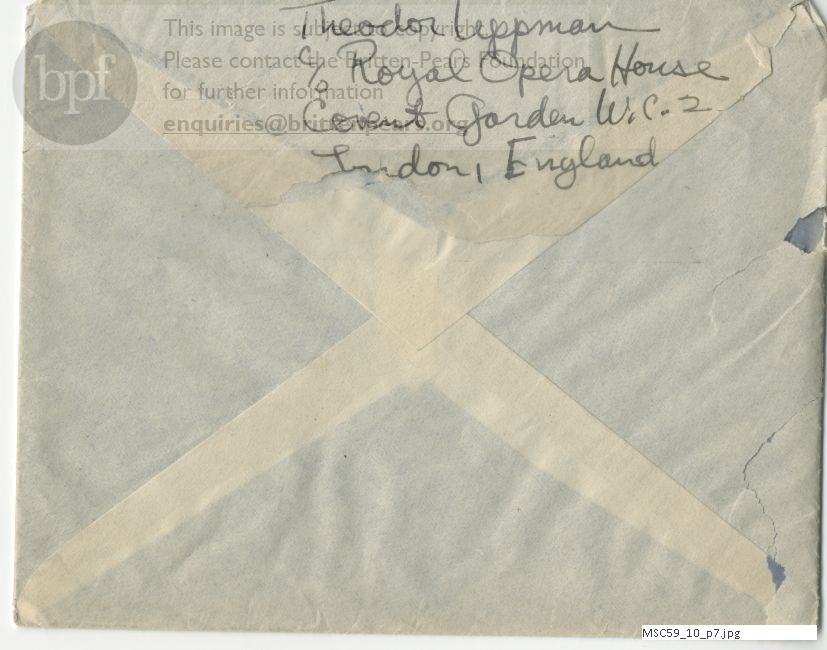 Theodor Uppman
c/o Royal Opera House
Covent Garden W.C.2
London, England
This image is subject to copyright
Please contact the Britten-Pears Foundation
for further information
enquiries@brittenpears.org
bpf
MSC59_10_p7.jpg